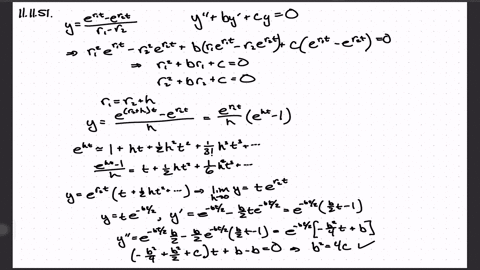 11.11.51.
y = (e^{r₁t} - e^{r₂t})/(r₁-r₂)    y'' + by' + cy = 0
⇒ r₁²e^{r₁t} - r₂²e^{r₂t} + b(r₁e^{r₁t} - r₂e^{r₂t}) + c(e^{r₁t} - e^{r₂t}) = 0
⇒ r₁² + br₁ + c = 0
r₂² + br₂ + c = 0
r₁ = r₂ + h
y = (e^{(r₂+h)t} - e^{r₂t})/h = e^{r₂t}/h (e^{ht} - 1)
e^{ht} ≈ 1 + ht + ½h²t² + 1/3! h³t³ + ⋯
(e^{ht} - 1)/h = t + ½ht² + 1/6 h²t³ + ⋯
y = e^{r₂t}(t + ½ht² + ⋯) ⇒ lim_{h→0} y = te^{r₂t}
y = te^{-bt/2}, y' = e^{-bt/2} - b/2 te^{-bt/2} = e^{-bt/2}(b/2 t - 1)
y'' = e^{-bt/2} b/2 - b/2 e^{-bt/2}(b/2 t - 1) = e^{-bt/2}[-b²/4 t + b]
(-b²/4 + b²/2 + c)t + b - b = 0 ⇒ b² = 4c ✓